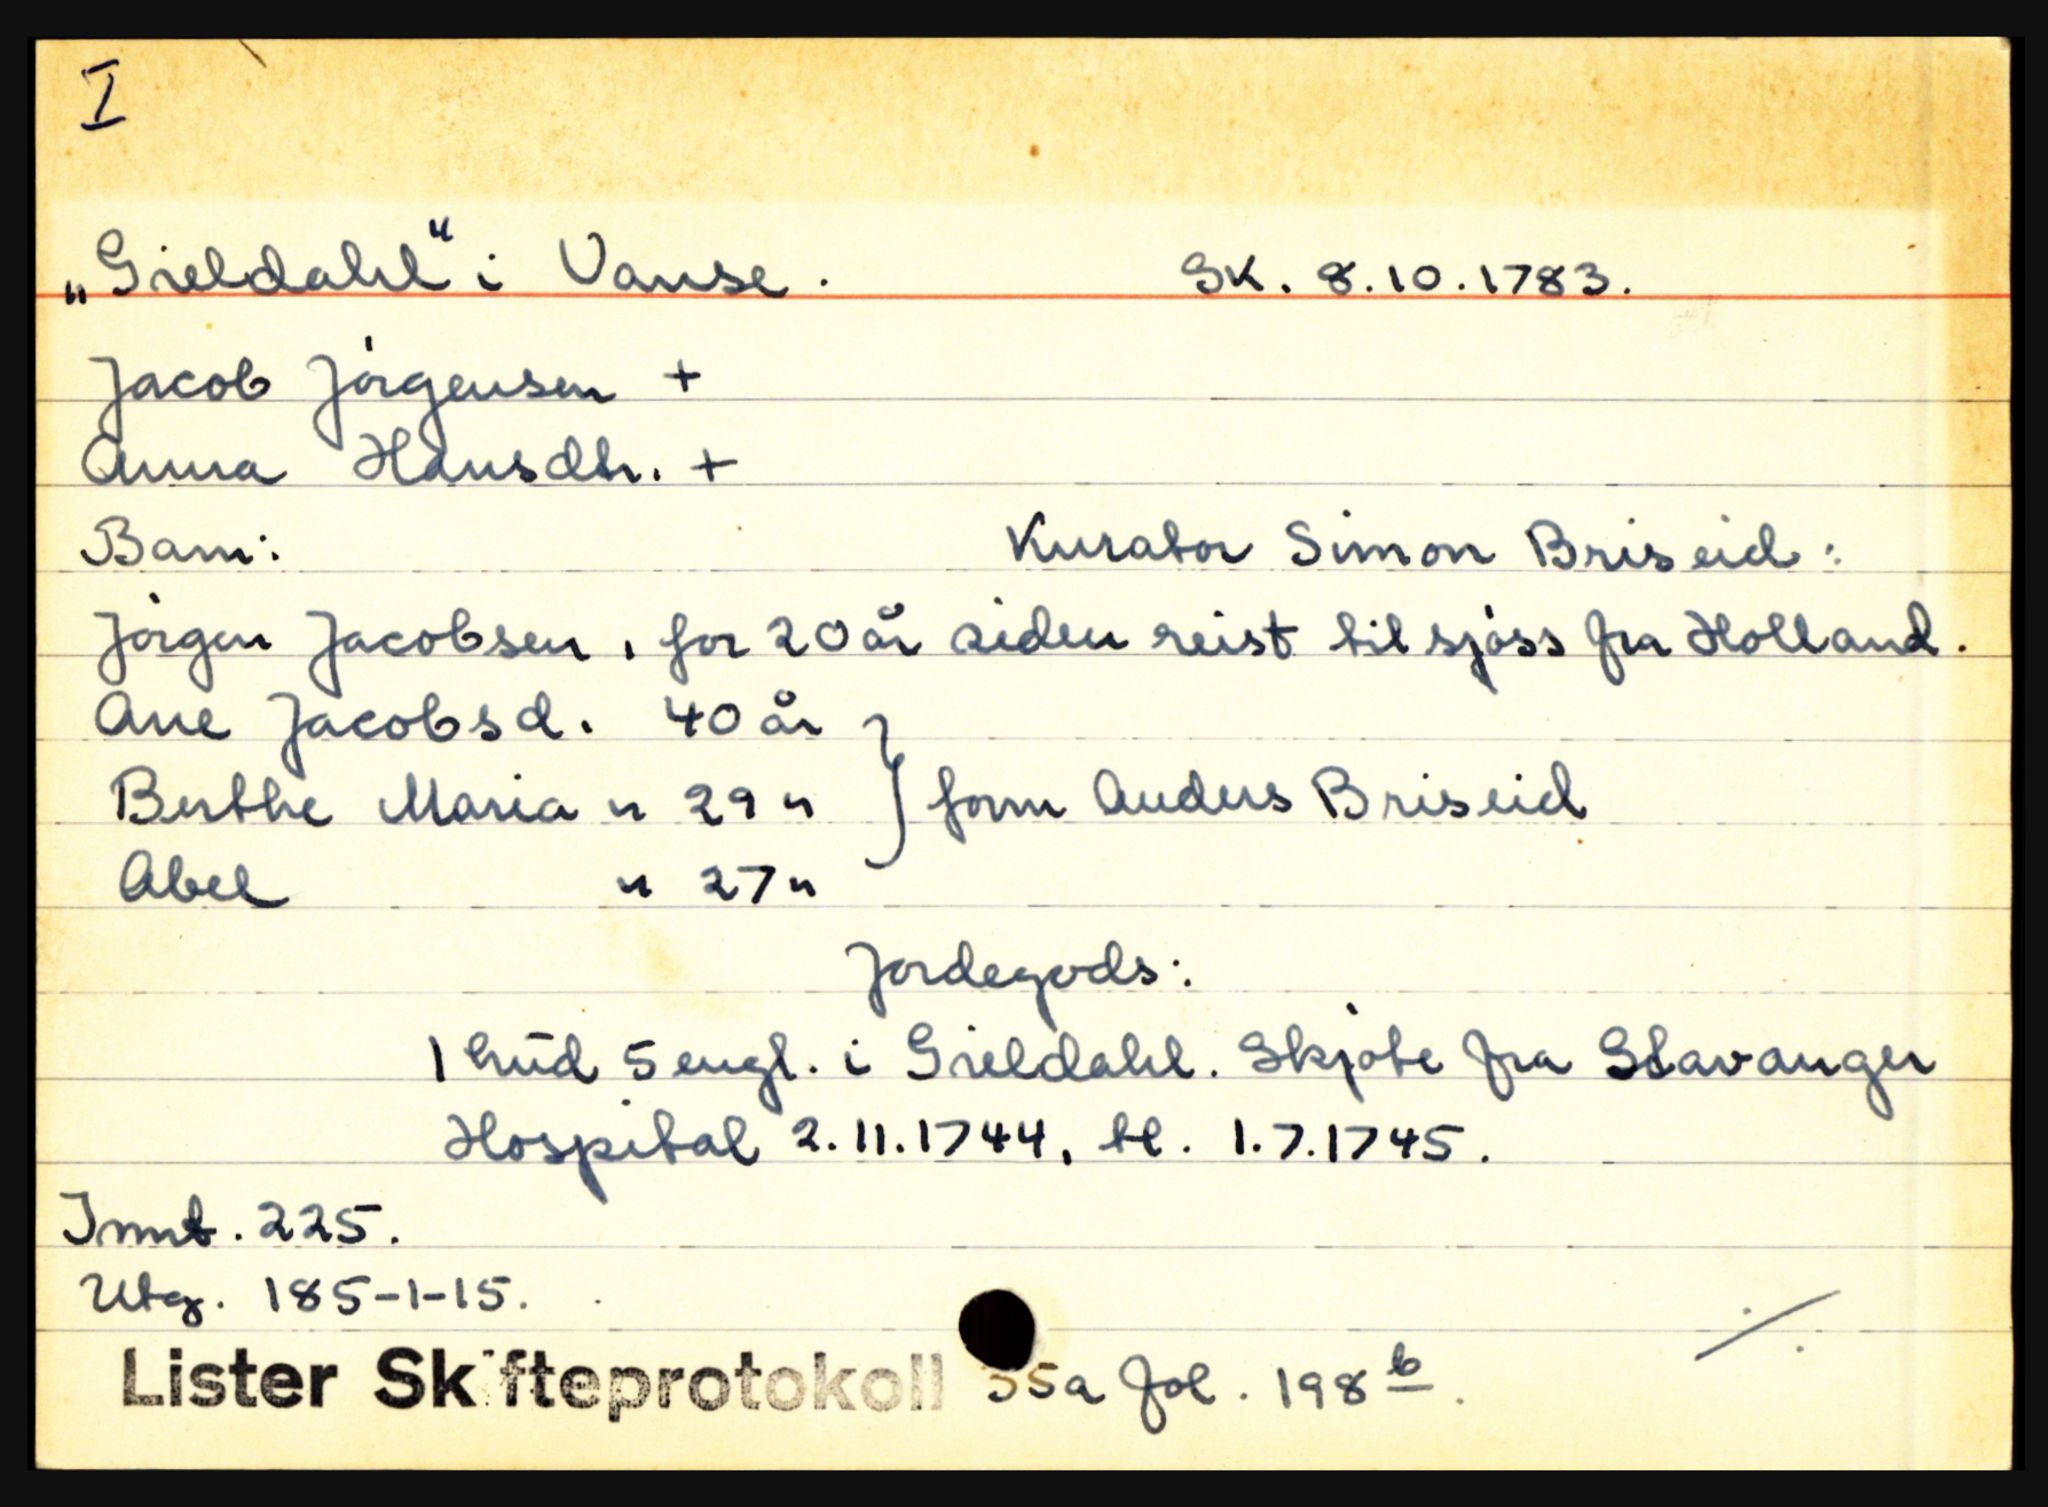 I
„Gieldahl" i Vanse. SK. 8.10.1783.
Jacob Jórgensen +
Anna Hansdtr. +
Barn: Kurator Simon Briseid:
Jórgen Jacobsen, for 20 år siden reist til sjóss fra Holland.
Ane Jacobsd. 40 år
Berthe Maria " 29 " } form Anders Briseid
Abel " 27 "
Jordegods:
1 hud 5 engl. i Gieldahl. Skjóte fra Stavanger
Hospital 2.11.1744, tl. 1.7.1745.
Innt. 225.
Utg. 185-1-15.
Lister Skifteprotokoll 35a fol. 198 b.